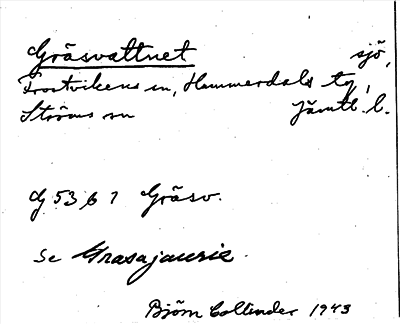 Gräsvattnet sjö,
Frostvikens sn, Hammerdals tg,
Ströms sn Jämtl. l.
G 53 6 7 Gräsv.
Se Grasajaurie.
Björn Collinder 1943